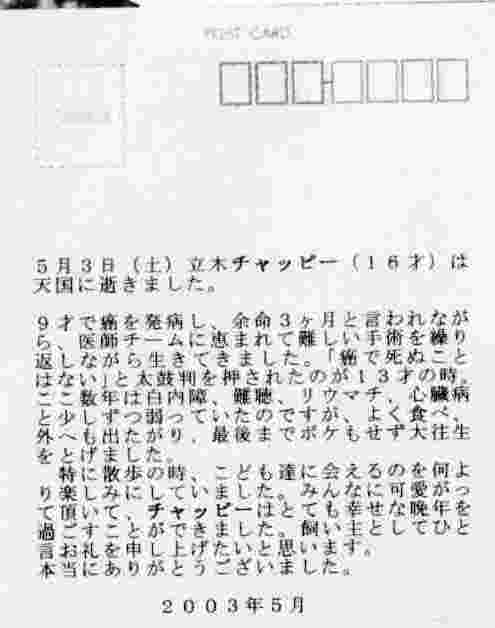 POST CARD
5月3日（土）立木チャッピー（16才）は
天国に逝きました。
9才で癌を発病し、余命3ヶ月と言われなが
ら、医師チームに恵まれて難しい手術を繰り
返しながら生きてきました。「癌で死ぬこと
はない」と太鼓判を押されたのが13才の時。
ここ数年は白内障、難聴、リウマチ、心臓病
と少しずつ弱っていたのですが、よく食べ、
外へも出たがり、最後までボケもせず大往生
をとげました。
特に散歩の時、こども達に会えるのを何よ
り楽しみにしていました。みんなに可愛がっ
て頂いて、チャッピーはとても幸せな晩年を
過ごすことができました。飼い主としてひと
言お礼を申し上げたいと思います。
本当にありがとうございました。
2003年5月